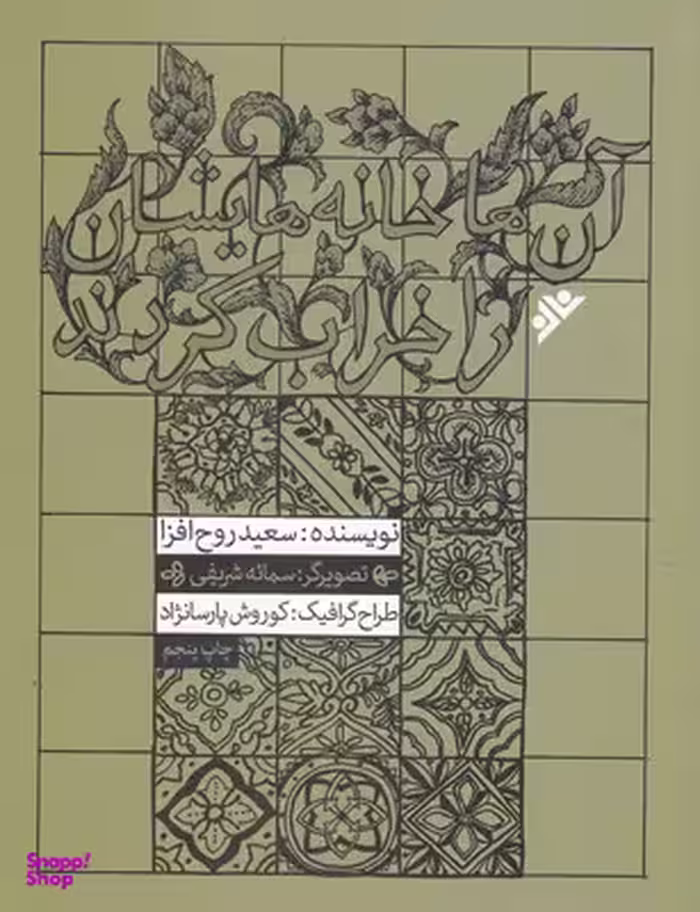 آن‌ها خانه‌هایشان
را خراب کردند
نویسنده: سعید روح‌افزا
تصویرگر: سمانه شریفی
طراح گرافیک: کوروش پارسانژاد
چاپ پنجم
Snapp!
Shop